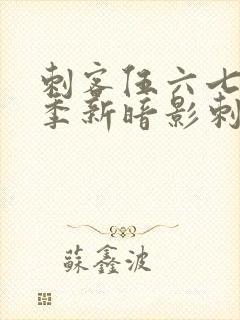 刺客伍六七
季新暗影刺
蘇鑫波